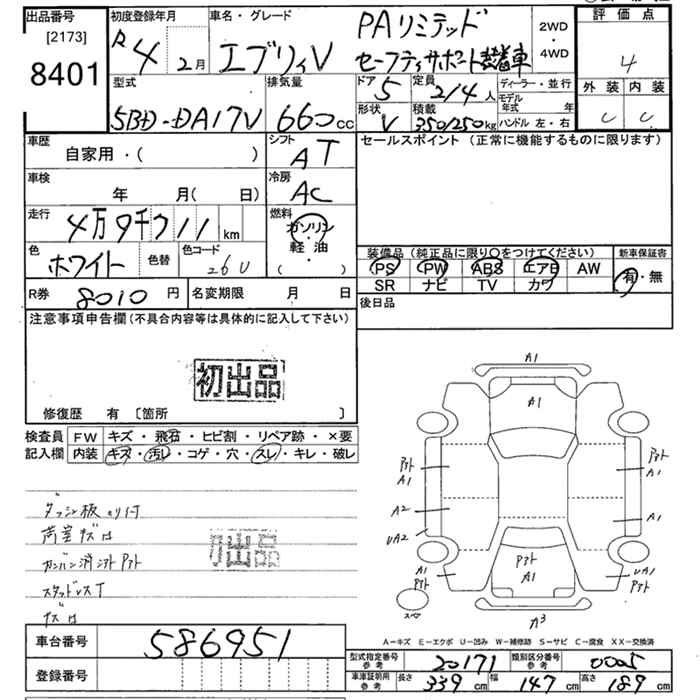 出品番号 初度登録年月 車名・グレード 評価点
[2173] R4 2月 エブリィV PAリミテッド 2WD
8401 セーフティサポート装着車 4WD 4
型式 排気量 ドア 定員 ディーラー・並行 外装 内装
5BD-DA17V 660cc 5 2/4人 モデル年式 年 C C
形状 積載 ハンドル 左・右
V 350/250kg
車歴 シフト セールスポイント (正常に機能するものに限ります)
自家用・( ) AT
車検 冷房
年 月( 日) AC
走行 燃料
4万9千711km ガソリン
色 色替 色コード 軽・油
ホワイト 26U ( )
装備品 (純正品に限り○をつけてください) 新車保証書
PS PW ABS エアB AW 有・無
SR ナビ TV カワ
R券 8010円 名変期限 月 日 後日品
注意事項申告欄 (不具合内容等は具体的に記入して下さい)
初出品
修復歴 有 [箇所 ]
検査員 FW キズ・飛石・ヒビ割・リペア跡・×要
記入欄 内装 キズ・汚レ・コゲ・穴・スレ・キレ・破レ
ダッシュ板のり付
荷室キズ凹
初出品
スタッドレスT
キズ凹
A1
A1
アト アト
A1 A1
A2 A1
UA2
アト
A1 UA1
A1
アト アト
スペア
A3
A-キズ E-エクボ U-凹み W-補修跡 S-サビ C-腐食 XX-交換済
車台番号 586951
登録番号
型式指定番号 参考 20171 類別区分番号 参考 0005
車庫証明用 参考 長さ 339cm 幅 147cm 高さ 189cm